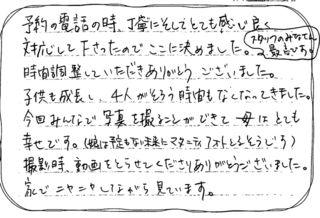 予約の電話の時、丁寧にそしてとても感じ良く
対応して下さったのでここに決めました。
スタッフのみなさん
最高です。
時間調整していただきありがとうございました。
子供も成長し、4人がそろう時間もなくなってきました。
今回みんなで写真を撮ることができて母はとても
幸せです。(娘は予定もない未来にマタニティフォトしそうじゃ)
撮影時、動画をとらせてくださりありがとうございました。
家でニヤニヤしながら見ています。